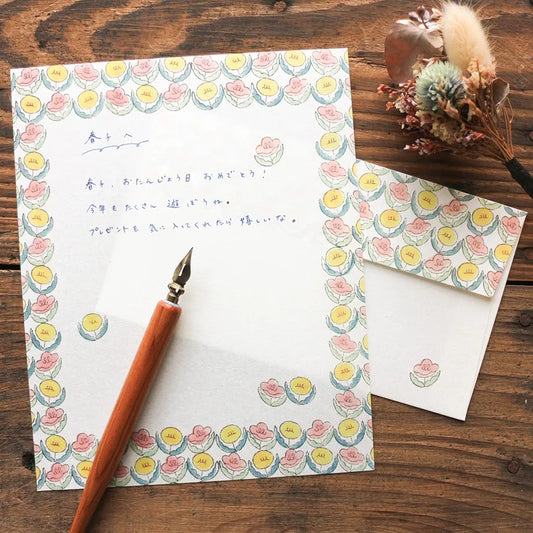 春子へ
春子、おたんじょう日 おめでとう!
今年も たくさん 遊ぼうね。
プレゼントも 気に入ってくれたら 嬉しいな。